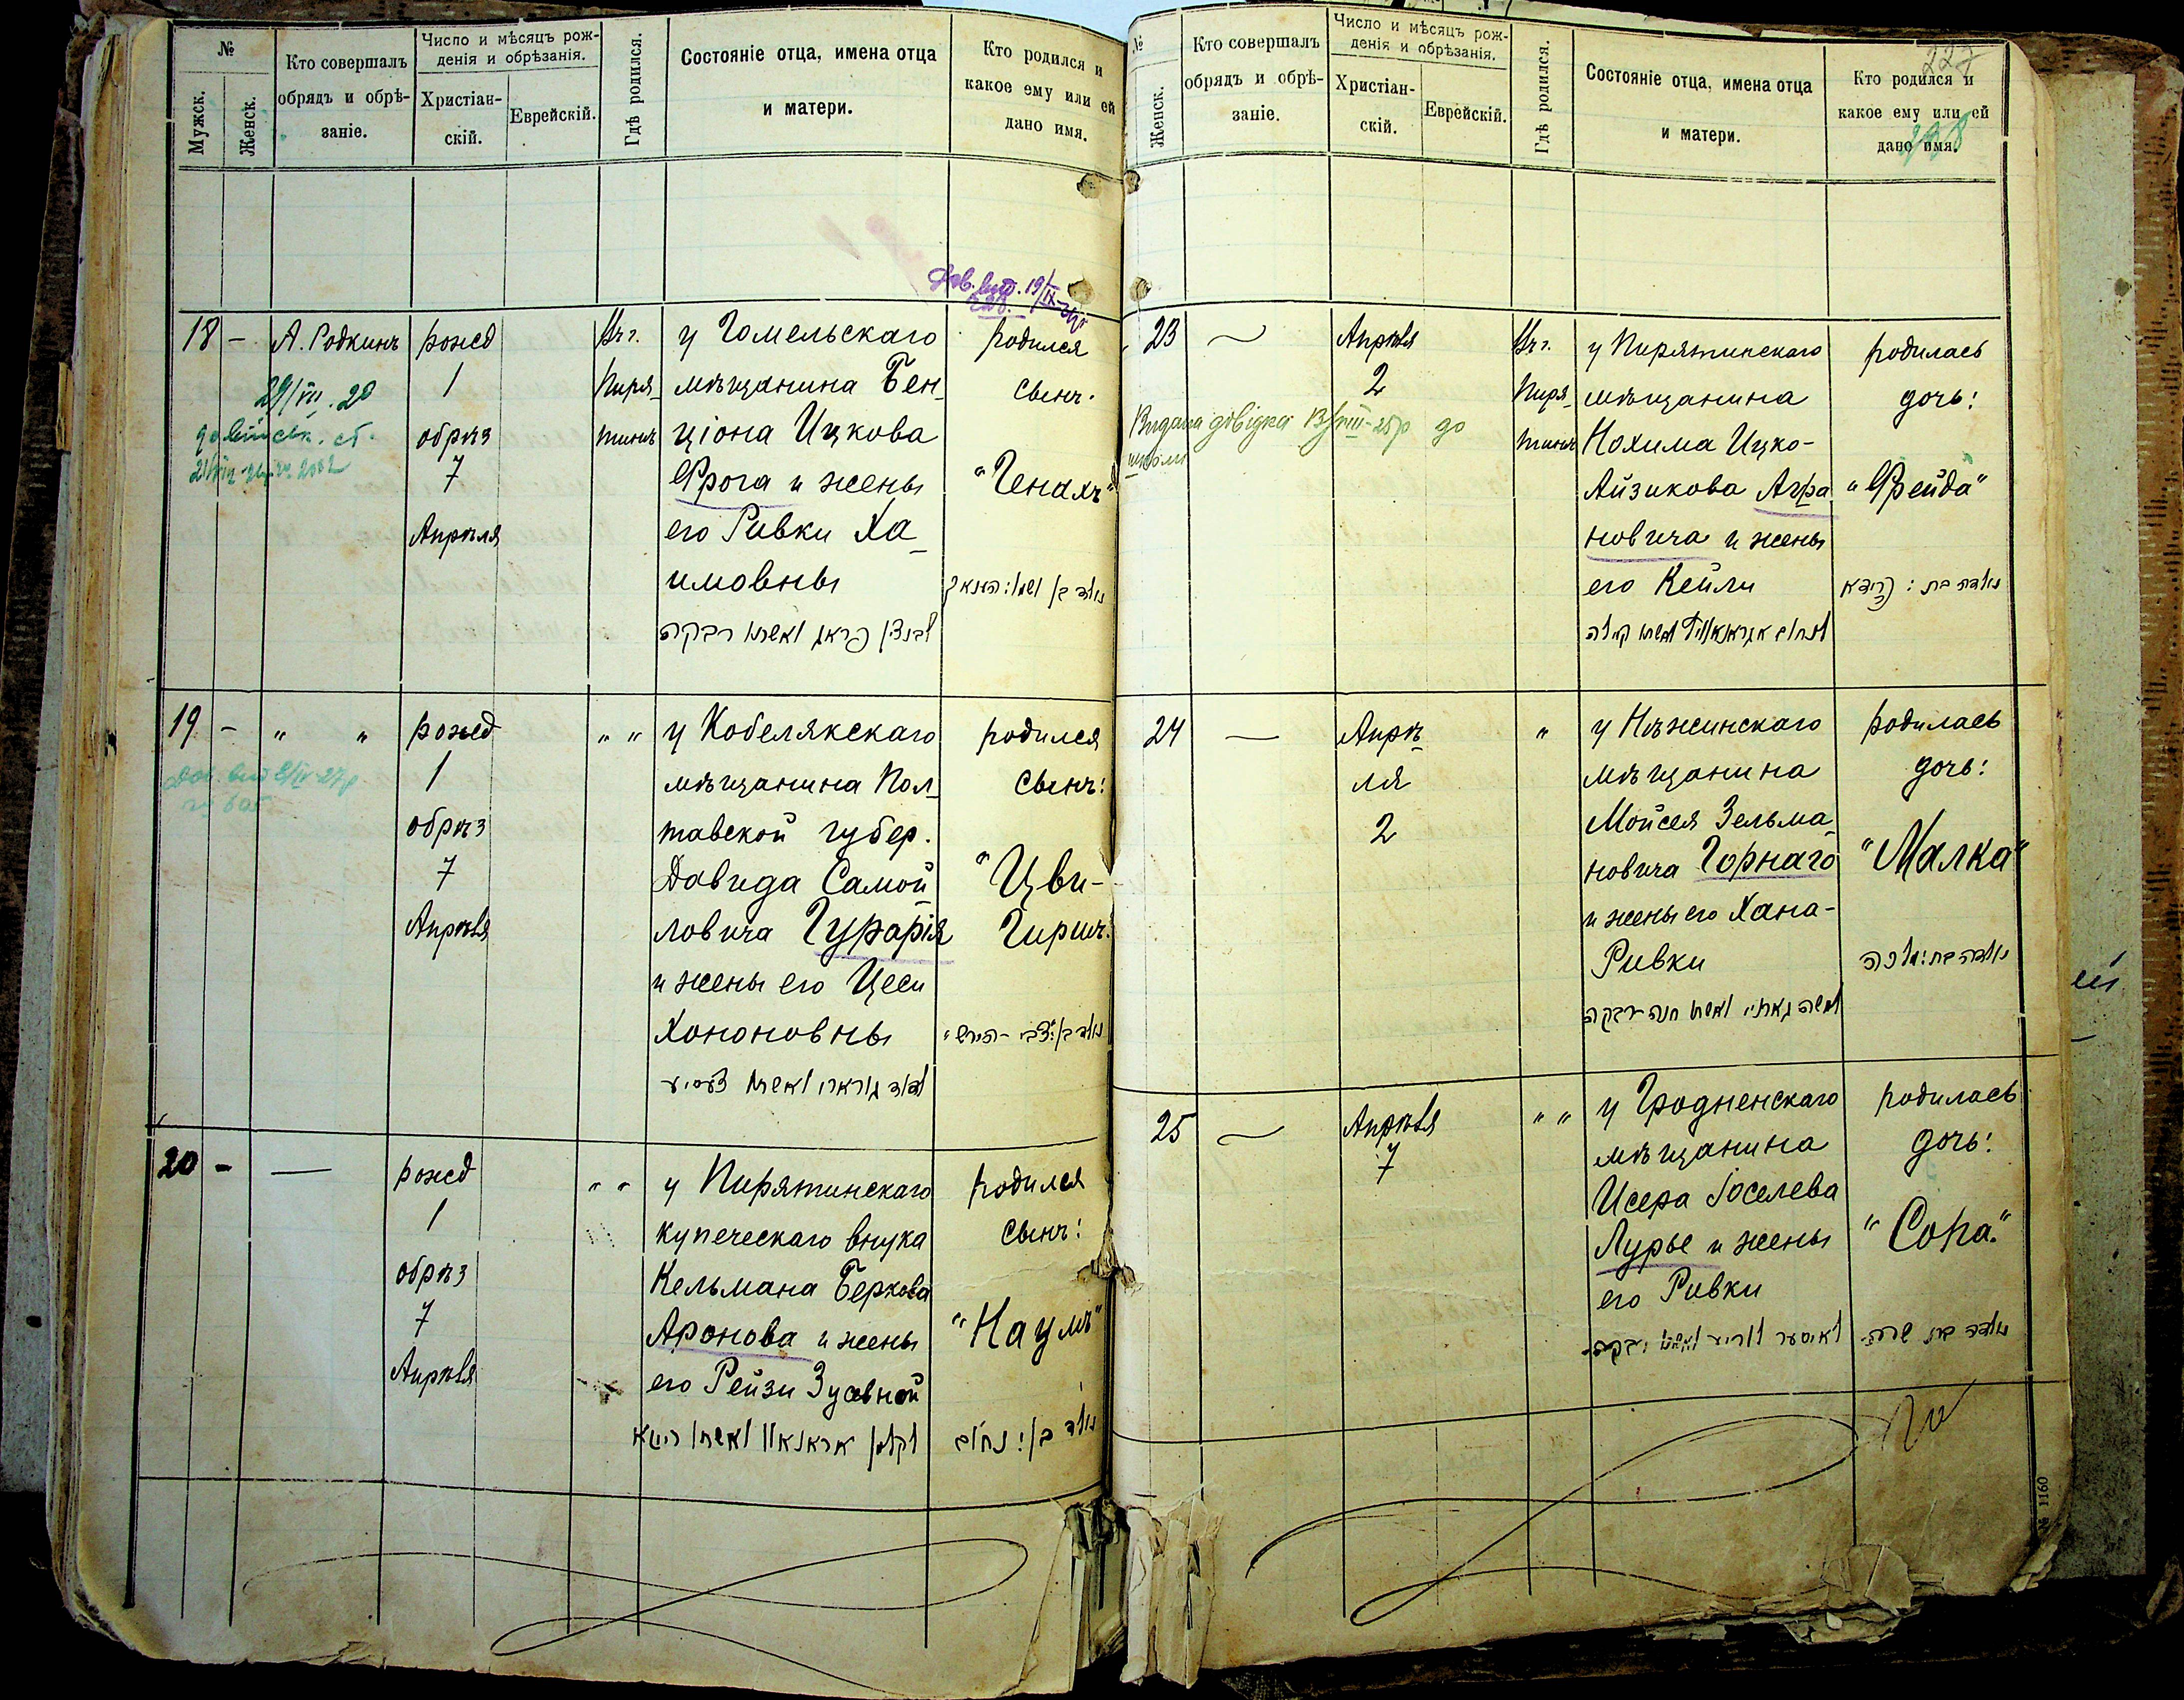 №
Мужск.
Женск.
Кто совершалъ
обрядъ и обрѣ-
заніе.
Число и мѣсяцъ рож-
денія и обрѣзанія.
Христіан-
скій.
Еврейскій.
Гдѣ родился.
Состояніе отца, имена отца
и матери.
Кто родился и
какое ему или ей
дано имя.
18 –
А. Родкинъ
рожд
1
обрѣз
7
Апрѣля
Въ г.
Пиря_
тинѣ
у Гомельскаго
мѣщанина Бен_
ціона Ицкова
Фрога и жены
его Ривки Ха_
имовны
לבנצין פראג ואשתו רבקה
родился
сынъ.
"Генахъ"
19 – " "
рожд
1
обрѣз
7
Апрѣля
" "
у Кобелякскаго
мѣщанина Пол_
тавской губер.
Давида Самой_
ловича Гурарія
и жены его Цеси
Хононовны
родился
сынъ:
"Цви-
Гиршъ"
20 – —
рожд
1
обрѣз
7
Апрѣля
" "
у Пирятинскаго
купеческаго внука
Кельмана Беркова
Аронова и жены
его Рейзи Зусевной
родился
сынъ:
"Наумъ"
נולד בן: נחום
№
Женск.
Кто совершалъ
обрядъ и обрѣ-
заніе.
Число и мѣсяцъ рож-
денія и обрѣзанія.
Христіан-
скій.
Еврейскій.
Гдѣ родился.
Состояніе отца, имена отца
и матери.
Кто родился и
какое ему или ей
дано имя.
227
23
Апрѣля
2
Въ г.
Пиря_
тинѣ
у Пирятинскаго
мѣщанина
Нохима Ицко-
Айзикова Агра_
новича и жены
его Кейли
родилась
дочь:
"Фрейда"
נולדה בת: פרידא
Видана довідка 13/VIII-25р до
школи
24 —
Апрѣ_
ля
2
"
у Нѣжинскаго
мѣщанина
Мойсея Зельма_
новича Горнаго
и жены его Хана-
Ривки
родилась
дочь:
"Малка"
נולדה בת: מלכה
25
Апрѣля
7
" "
у Гродненскаго
мѣщанина
Исера Іоселева
Лурье и жены
его Ривки
родилась
дочь:
"Сора."
נולדה בת שרה
№ 1160